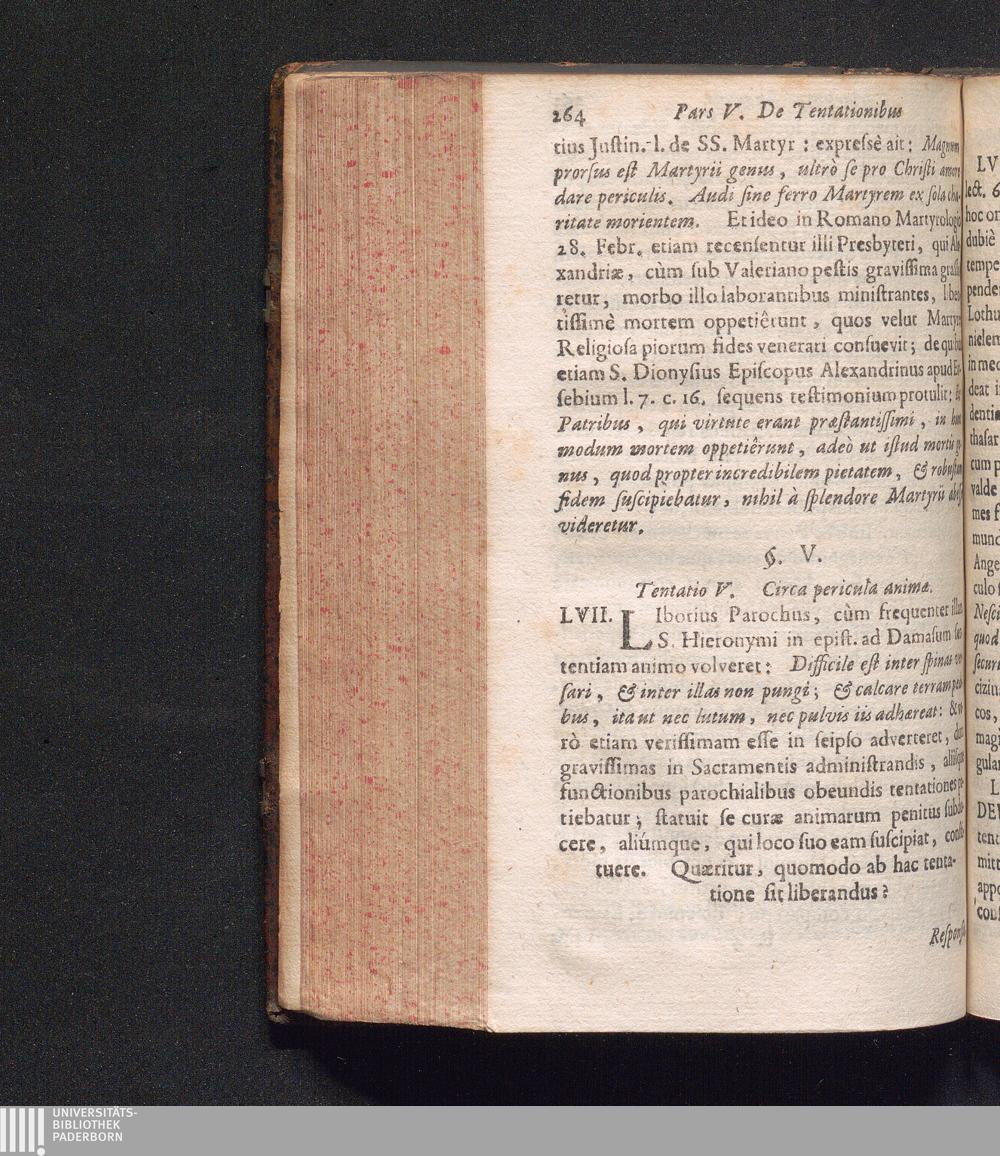 264 Pars V. De Tentationibus
tius Justin. l. de SS. Martyr : expressè ait : Magnum
prorsus est Martyrii genus , ultrò se pro Christi amore
dare periculis. Audi sine ferro Martyrem ex sola cha-
ritate morientem. Et ideo in Romano Martyrologio
28. Febr. etiam recensentur illi Presbyteri, qui Ale-
xandriæ, cùm sub Valeriano pestis gravissima grassa-
retur, morbo illo laborantibus ministrantes, liben-
tissimè mortem oppetiêrunt , quos velut Martyres
Religiosa piorum fides venerari consuevit; de quibus
etiam S. Dionysius Episcopus Alexandrinus apud Eu-
sebium l. 7. c. 16. sequens testimonium protulit;
Patribus , qui virtute erant præstantissimi , in hunc
modum mortem oppetiêrunt , adeò ut istud mortis ge-
nus , quod propter incredibilem pietatem , & robustam
fidem suscipiebatur , nihil à splendore Martyrii abesse
videretur.
§. V.
Tentatio V. Circa pericula animæ.
LVII. LIborius Parochus, cùm frequenter illam
S. Hieronymi in epist. ad Damasum sen-
tentiam animo volveret: Difficile est inter spinas ver-
sari , & inter illas non pungi ; & calcare terram pedi-
bus , ita ut nec lutum , nec pulvis iis adhæreat: & ve-
rò etiam verissimam esse in seipso adverteret, dum
gravissimas in Sacramentis administrandis , aliisque
functionibus parochialibus obeundis tentationes pa-
tiebatur ; statuit se curæ animarum penitus subdu-
cere, aliúmque, qui loco suo eam suscipiat, consti-
tuere. Quæritur, quomodo ab hac tenta-
tione sit liberandus?
LV
lect. 6
hoc or
dubiè
tempe
pende
Lothu
nielem
in med
deat i
dentiæ
thasar
cum p
valde
mes f
mund
Ange
culo s
Nesci
quod
securi
ciziu
cos,
magi
gular
L
DEU
tent
mitt
appo
UNIVERSITÄTS-
BIBLIOTHEK
PADERBORN